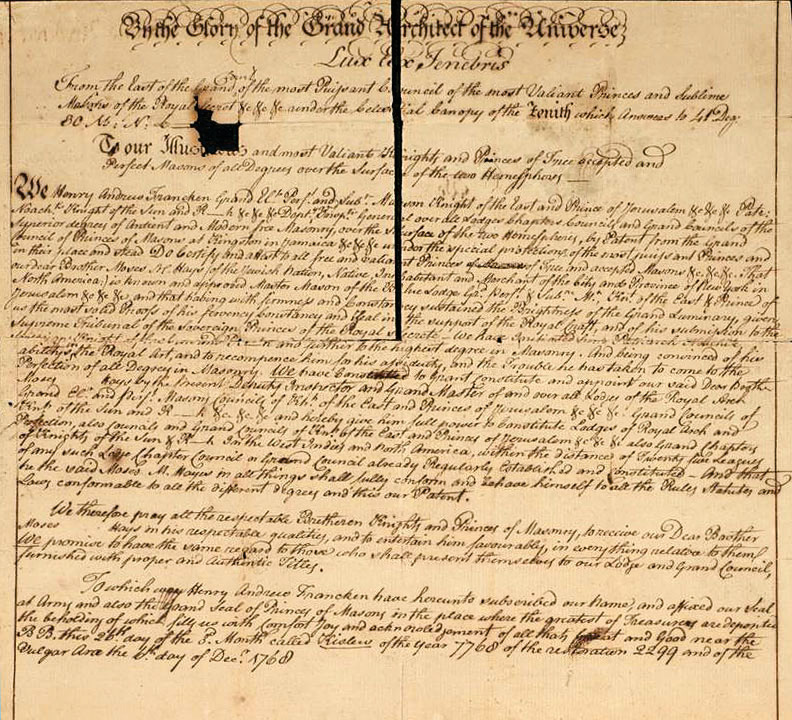 By the Glory of the Grand Architect of the Universe
Lux Tenebris
From the East of the Grand of the most Puissant Council of the most Valiant Princes and Sublime
Masons of the Royal &c &c &c under the Celestial Canopy of the Zenith which Answers to Deg:
To our and most Valiant Knights and Princes of Free accepted and
Perfect Masons of all Degrees over the Surface of the two Hemespheres
We Henry Andrew Francken Grand Sub: Mason Knight of the East and Prince of Jerusalem &c &c &c
Knight of the Sun and K—h &c &c &c over all Lodges Chapters Councils and Grand Councils of the
Superior degrees of Antient and Modern free Masonry, over the Surface of the two Hemespheres, by Patent from the Grand
Council of Princes of Masons at Kingston in Jamaica &c &c &c under the special protection of the most puissant Princes and
in their place and stead Do Certify and attest to all free and valiant Princes of Free and accepted Masons &c &c &c That
our dear Brother Moses M. Hays of the Jewish Nation, Native Inhabitant and Merchant of the City and Province of New york in
North America, is known and approved Master Mason of the Blue Lodge of the East & Prince of
Jerusalem &c &c &c and that having with firmness and Constancy sustained the Brightness of the Grand Luminary, given
us the most valid Proofs of his fervency Constancy and Zeal in the support of the Royal Craft, and of his submission to the
Supreme Tribunal of the Sovereign Princes of the Royal We have
and further to the highest degree in Masonry. And being convinced of his
abilitys the Royal Art, and to recompence him for his assiduity, and the Trouble he has taken to come to the
Perfection of all Degrees in Masonry. We have to Grant Constitute and appoint our said Dear Brother
Moses Hays by these present Deputy Instructor and Grand Master of and over all Lodges of the Royal Arch
Grand and Masonry Councils of of the East and Princes of Jerusalem &c &c &c Grand Councils of
of the Sun and K—h &c. &c. &c and hereby give him full power to Constitute Lodges of Royal Arch and
Perfection, also Councils and Grand Councils of of the East and Princes of Jerusalem &c &c &c also Grand Chapters
of Knights of the Sun & K—h In the West Indies and North America, within the distance of Twenty five Leagues
of any such Lodge Chapter Council or Grand Council already Regularly Established and Constituted – And that
he the said Moses M. Hays in all things shall fully conform and behave himself to all the Rules Statutes and
Laws conformable to all the different degrees and this our Patent.
We therefore pray all the respectable Bretheren Knights and Princes of Masonry, to receive our Dear Brother
Moses Hays in his respectable qualities, and to entertain him favourably, in everything relative to them
We promise to have the same regard to those who shall present themselves to our Lodge and Grand Council,
furnished with proper and Authentic Titles.
To which Henry Andrew Francken have hereunto subscribed our Name, and affixed our Seal
at Arms and also the Grand Seal of Princes of Masons in the place where the greatest of Treasures are deposited
the beholding of which fills us with Comfort Joy and acknowledgement of all that and Good near the
B.B. this 26th day of the Month called Kislew of the Year 7768 of the restoration 2299 and of the
Vulgar Aræ the 6th day of Decr. 1768